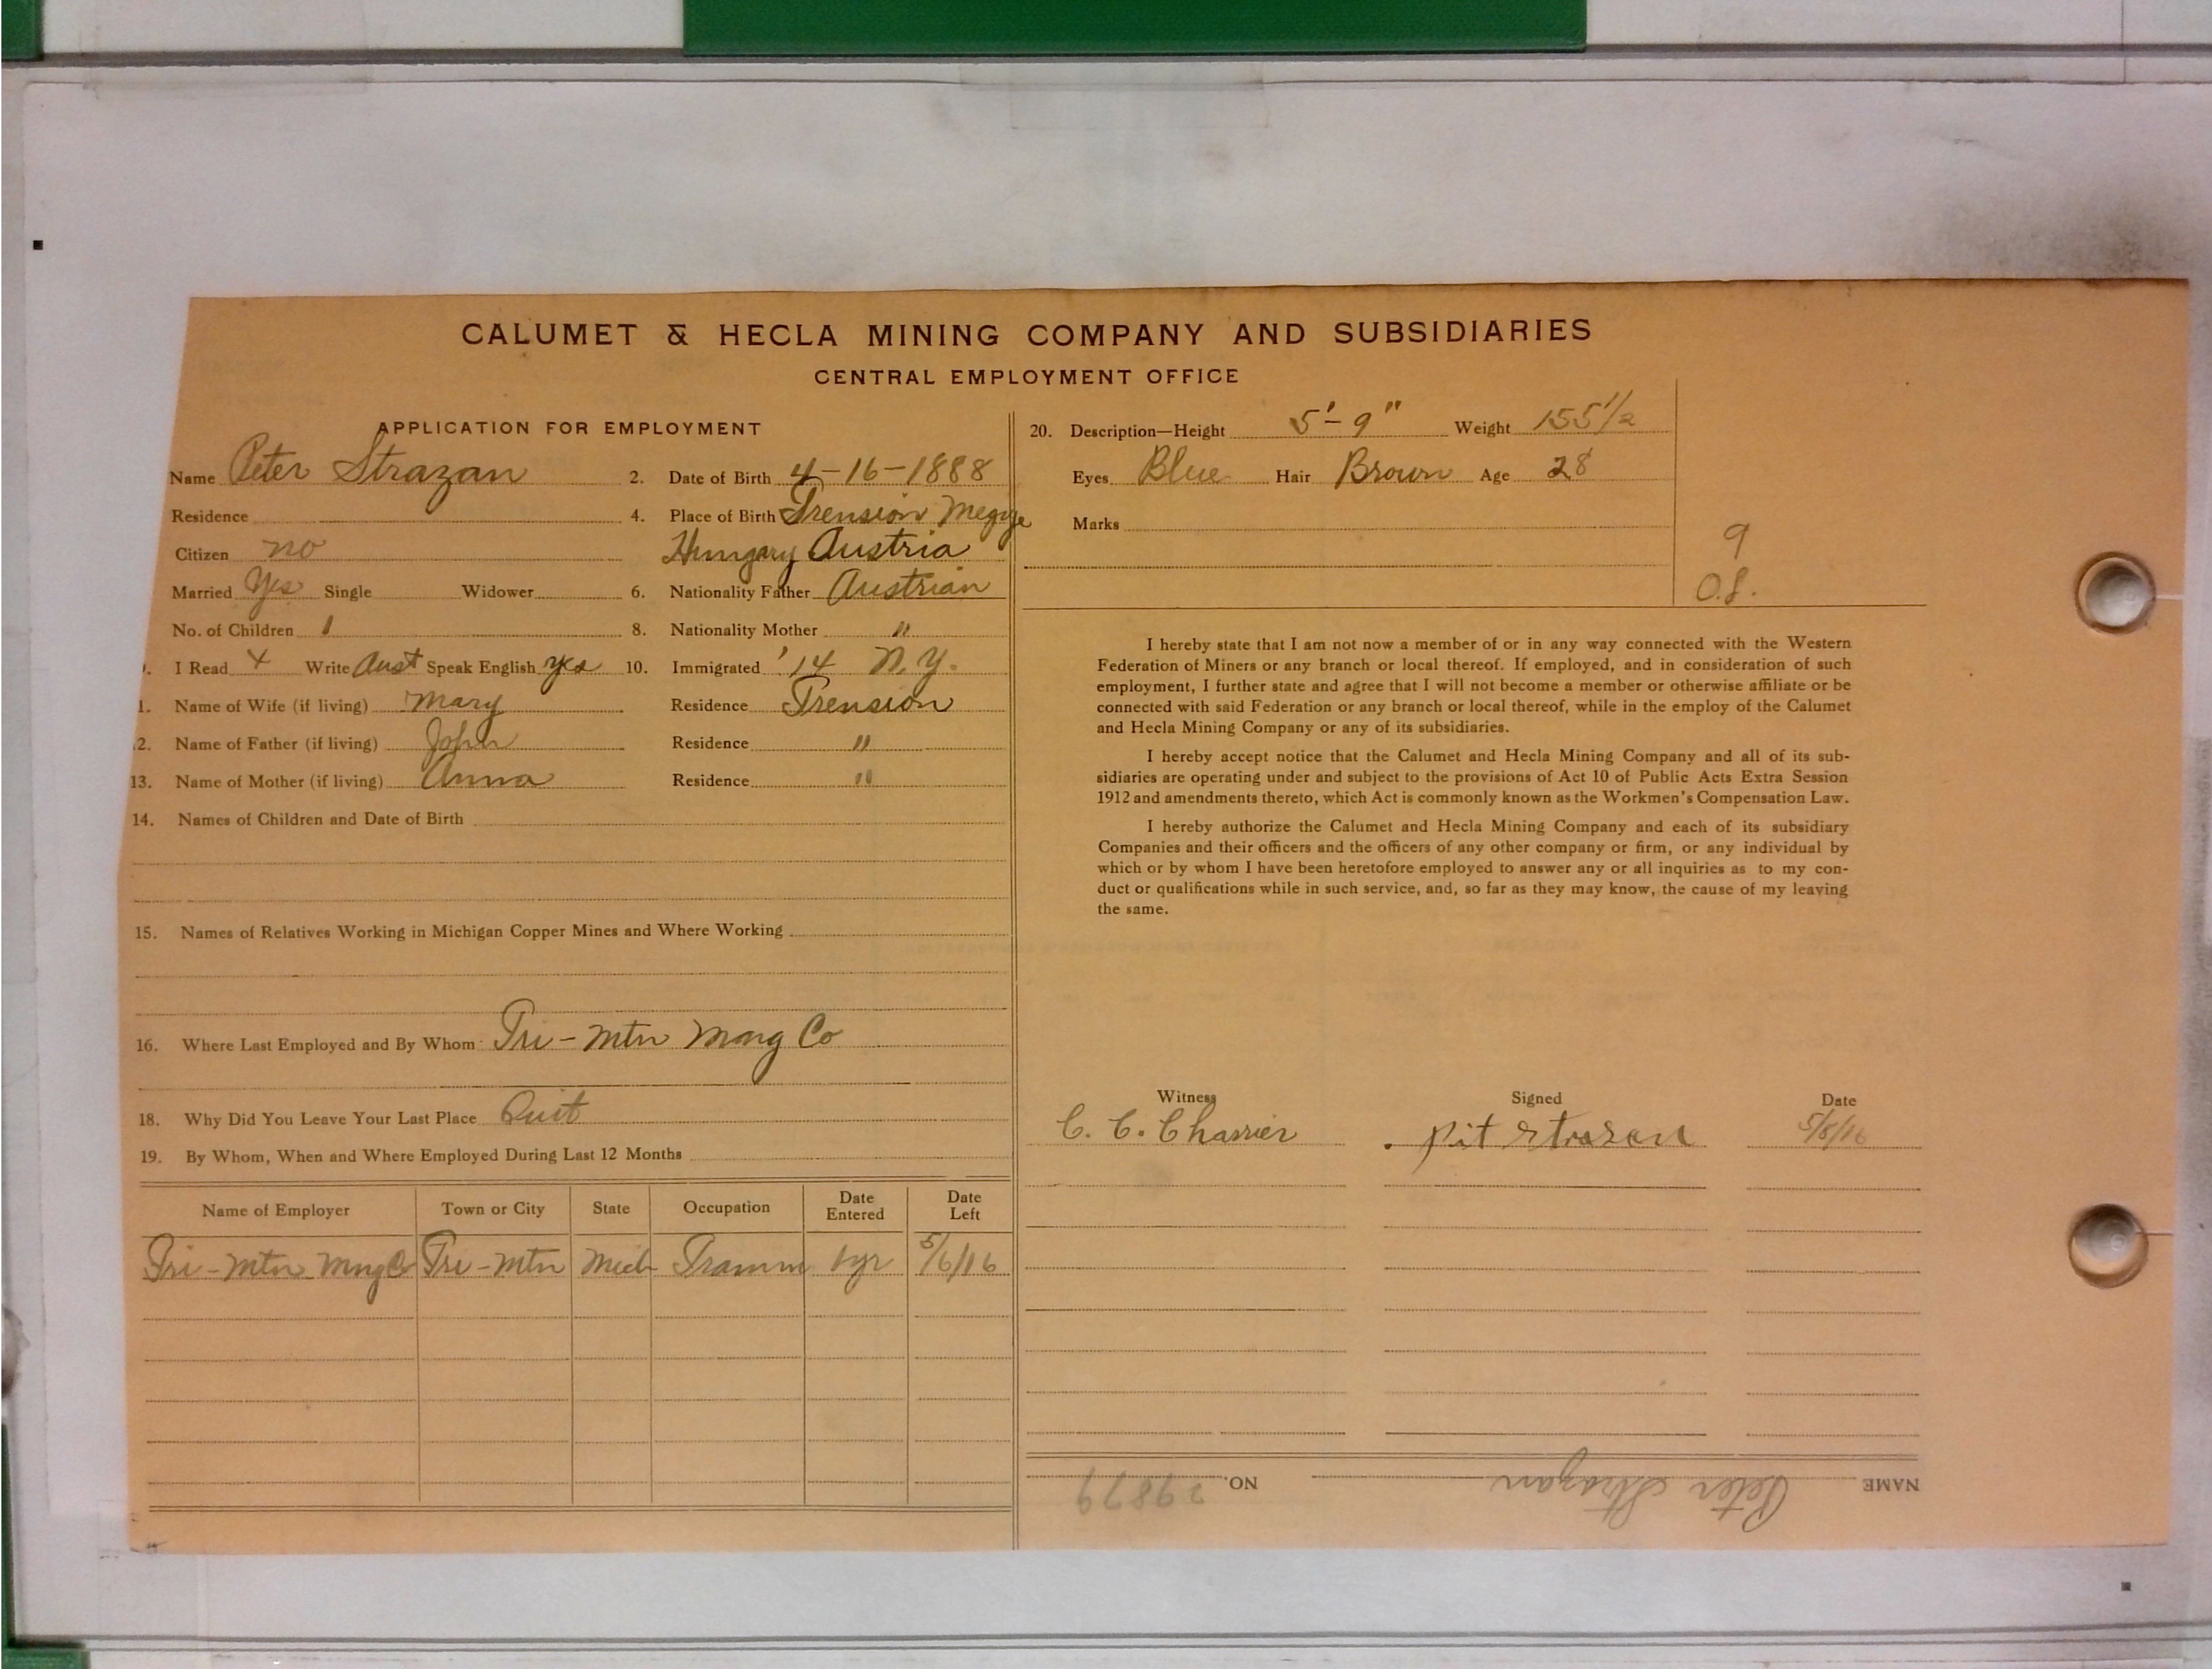 CALUMET & HECLA MINING COMPANY AND SUBSIDIARIES
CENTRAL EMPLOYMENT OFFICE
APPLICATION FOR EMPLOYMENT
Name Peter Strazan 2. Date of Birth 4-16-1888
Residence 4. Place of Birth Trension Megye
Citizen no Hungary Austria
Married Yes Single Widower 6. Nationality Father Austrian
No. of Children 1 8. Nationality Mother "
. I Read Write Aust Speak English yes 10. Immigrated '14 N.Y.
1. Name of Wife (if living) Mary Residence Trension
2. Name of Father (if living) John Residence "
13. Name of Mother (if living) Anna Residence "
14. Names of Children and Date of Birth
15. Names of Relatives Working in Michigan Copper Mines and Where Working
16. Where Last Employed and By Whom Tri-Mtn Mng Co
18. Why Did You Leave Your Last Place Quit
19. By Whom, When and Where Employed During Last 12 Months
Name of Employer Town or City State Occupation Date Entered Date Left
Tri-Mtn Mng Co Tri-Mtn Mich Tramm 1 yr 5/6/16
20. Description—Height 5'-9" Weight 155 1/2
Eyes Blue Hair Brown Age 28
Marks
9
O.S.
I hereby state that I am not now a member of or in any way connected with the Western
Federation of Miners or any branch or local thereof. If employed, and in consideration of such
employment, I further state and agree that I will not become a member or otherwise affiliate or be
connected with said Federation or any branch or local thereof, while in the employ of the Calumet
and Hecla Mining Company or any of its subsidiaries.
I hereby accept notice that the Calumet and Hecla Mining Company and all of its sub-
sidiaries are operating under and subject to the provisions of Act 10 of Public Acts Extra Session
1912 and amendments thereto, which Act is commonly known as the Workmen's Compensation Law.
I hereby authorize the Calumet and Hecla Mining Company and each of its subsidiary
Companies and their officers and the officers of any other company or firm, or any individual by
which or by whom I have been heretofore employed to answer any or all inquiries as to my con-
duct or qualifications while in such service, and, so far as they may know, the cause of my leaving
the same.
Witness Signed Date
C. C. Chassier Pit Strasen 5/8/16
NAME Peter Strazan NO. 29879